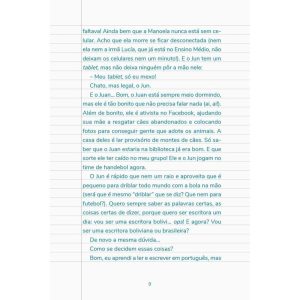 faltava! Ainda bem que a Manoela nunca está sem ce-
lular. Acho que ela morre se ficar desconectada (nem
ela nem a irmã Lucía, que já está no Ensino Médio, não
deixam os celulares nem um minuto!). E o Jun tem um
tablet, mas não deixa ninguém pôr a mão nele:
– Meu tablet, só eu mexo!
Chato, mas legal, o Jun.
E o Juan... Bom, o Juan está sempre meio dormindo,
mas ele é tão bonito que não precisa falar nada (ai, ai!).
Além de bonito, ele é ativista no Facebook, ajudando
sua mãe a resgatar cães abandonados e colocando
fotos para conseguir gente que adota os animais. A
casa deles é lar provisório de montes de cães. Só sa-
ber que o Juan estaria na biblioteca já era bom. E que
sorte ele ter caído no meu grupo! Ele e o Jun jogam no
time de handebol agora.
O Jun é rápido que nem um raio e aproveita que é
pequeno para driblar todo mundo com a bola na mão
(será que é mesmo "driblar" que se diz? Que nem para
futebol?). Quero sempre saber as palavras certas, as
coisas certas de dizer, porque quero ser escritora um
dia: vou ser uma escritora bolivi... opa! E agora? Vou
ser uma escritora boliviana ou brasileira?
De novo a mesma dúvida...
Como se decidem essas coisas?
Bom, eu aprendi a ler e escrever em português, mas
9